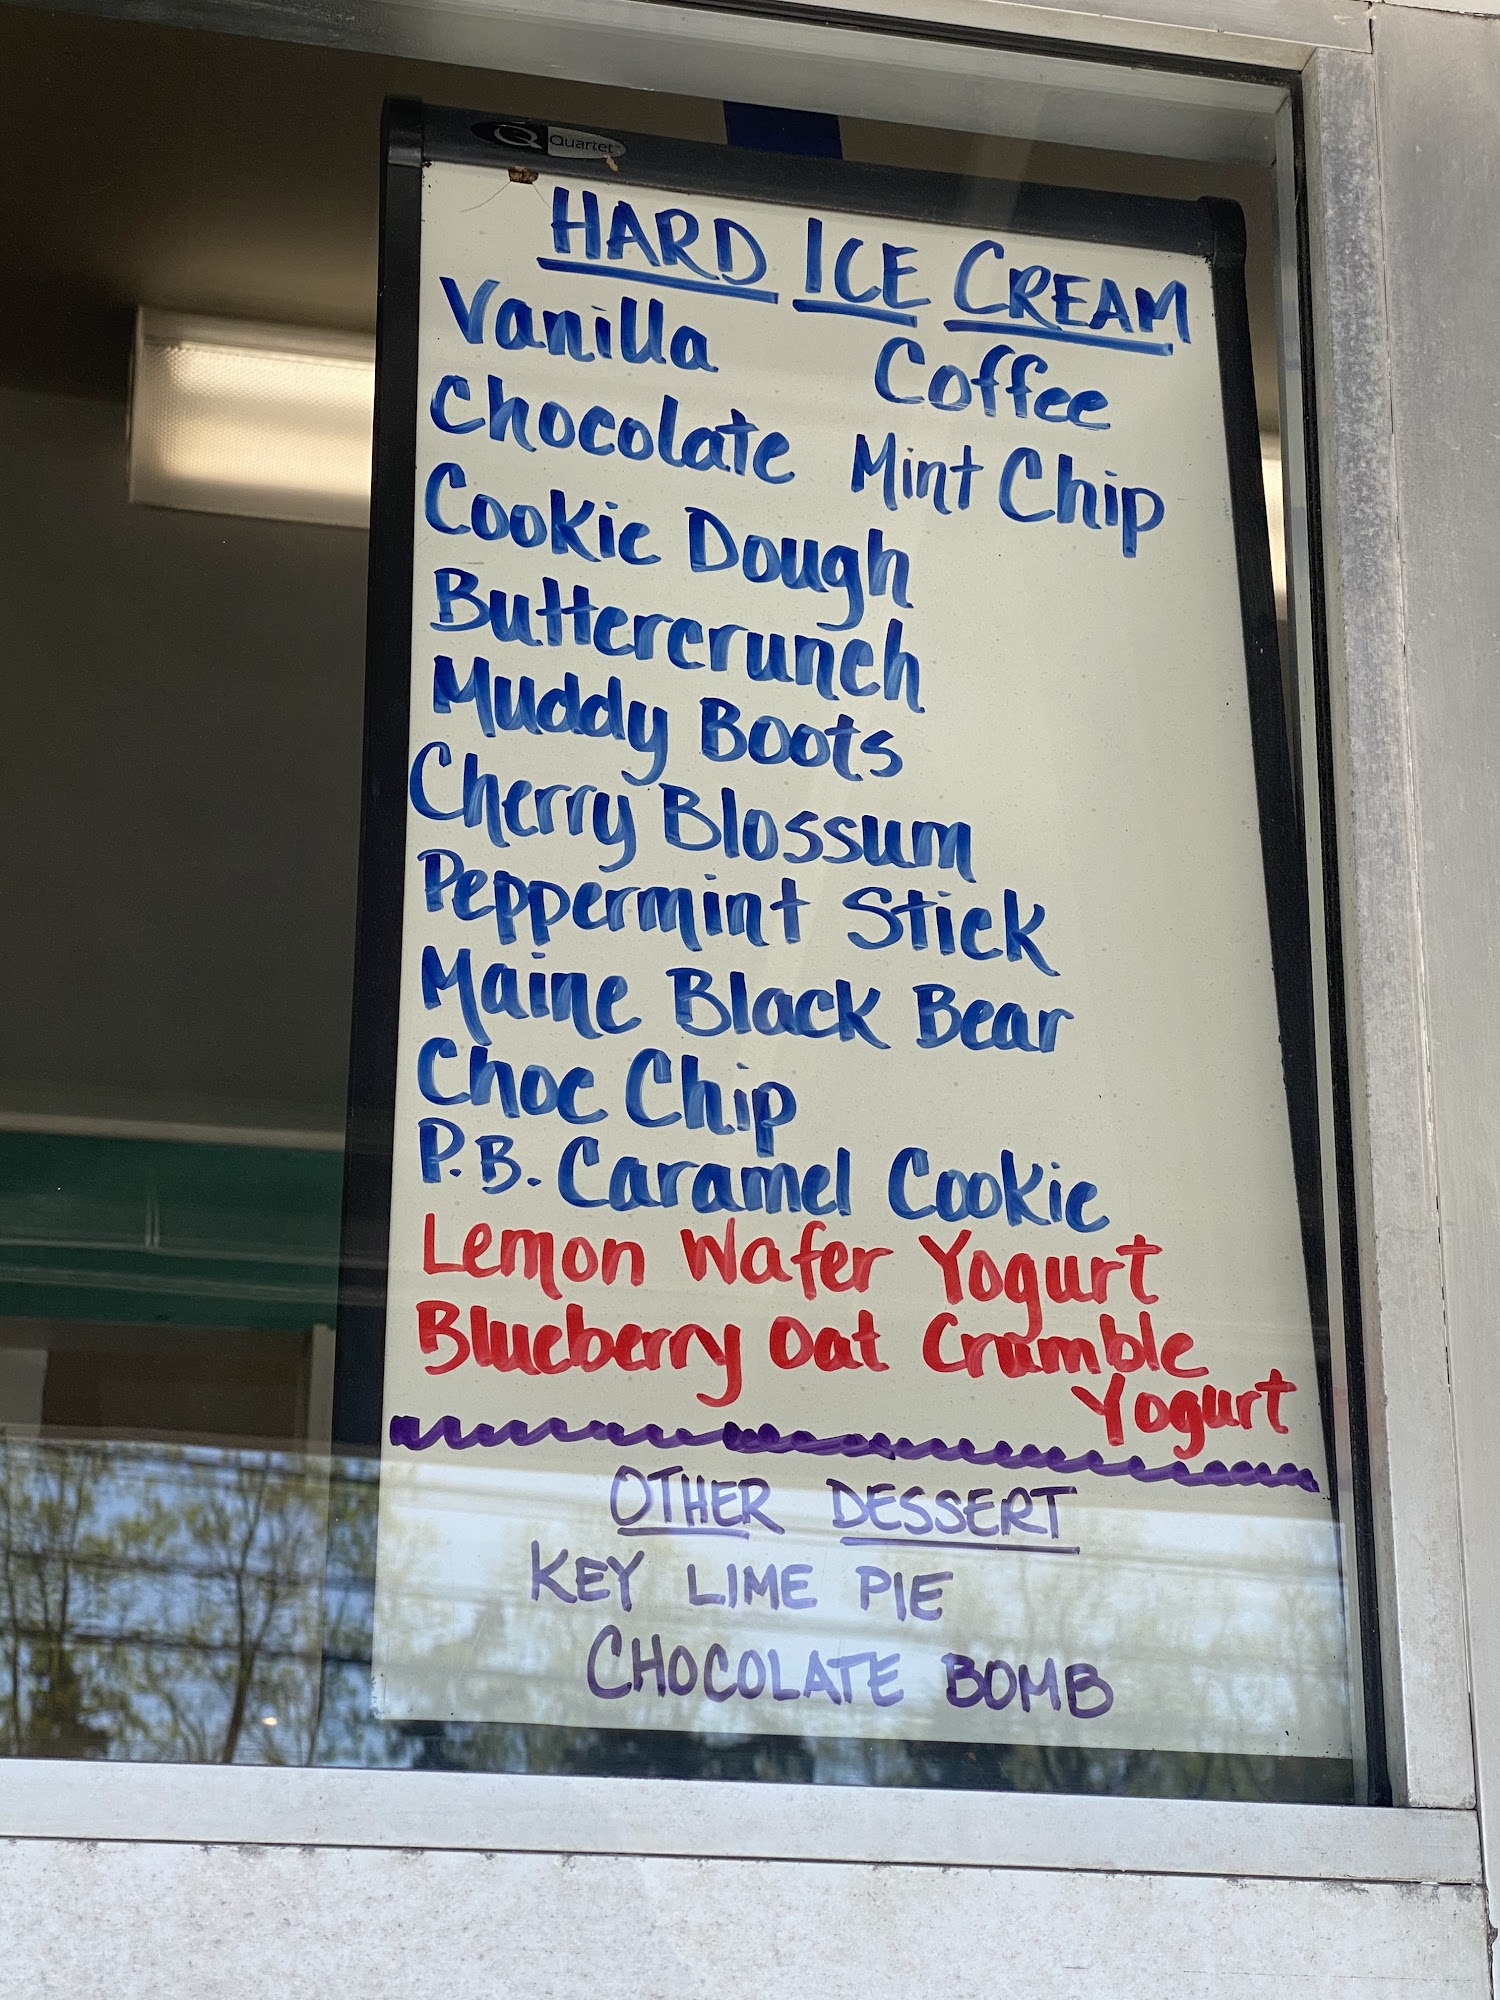 Quartet
HARD ICE CREAM
Vanilla Coffee
Chocolate Mint Chip
Cookie Dough
Buttercrunch
Muddy Boots
Cherry Blossum
Peppermint Stick
Maine Black Bear
Choc Chip
P.B. Caramel Cookie
Lemon Wafer Yogurt
Blueberry Oat Crumble
Yogurt
OTHER DESSERT
KEY LIME PIE
CHOCOLATE BOMB